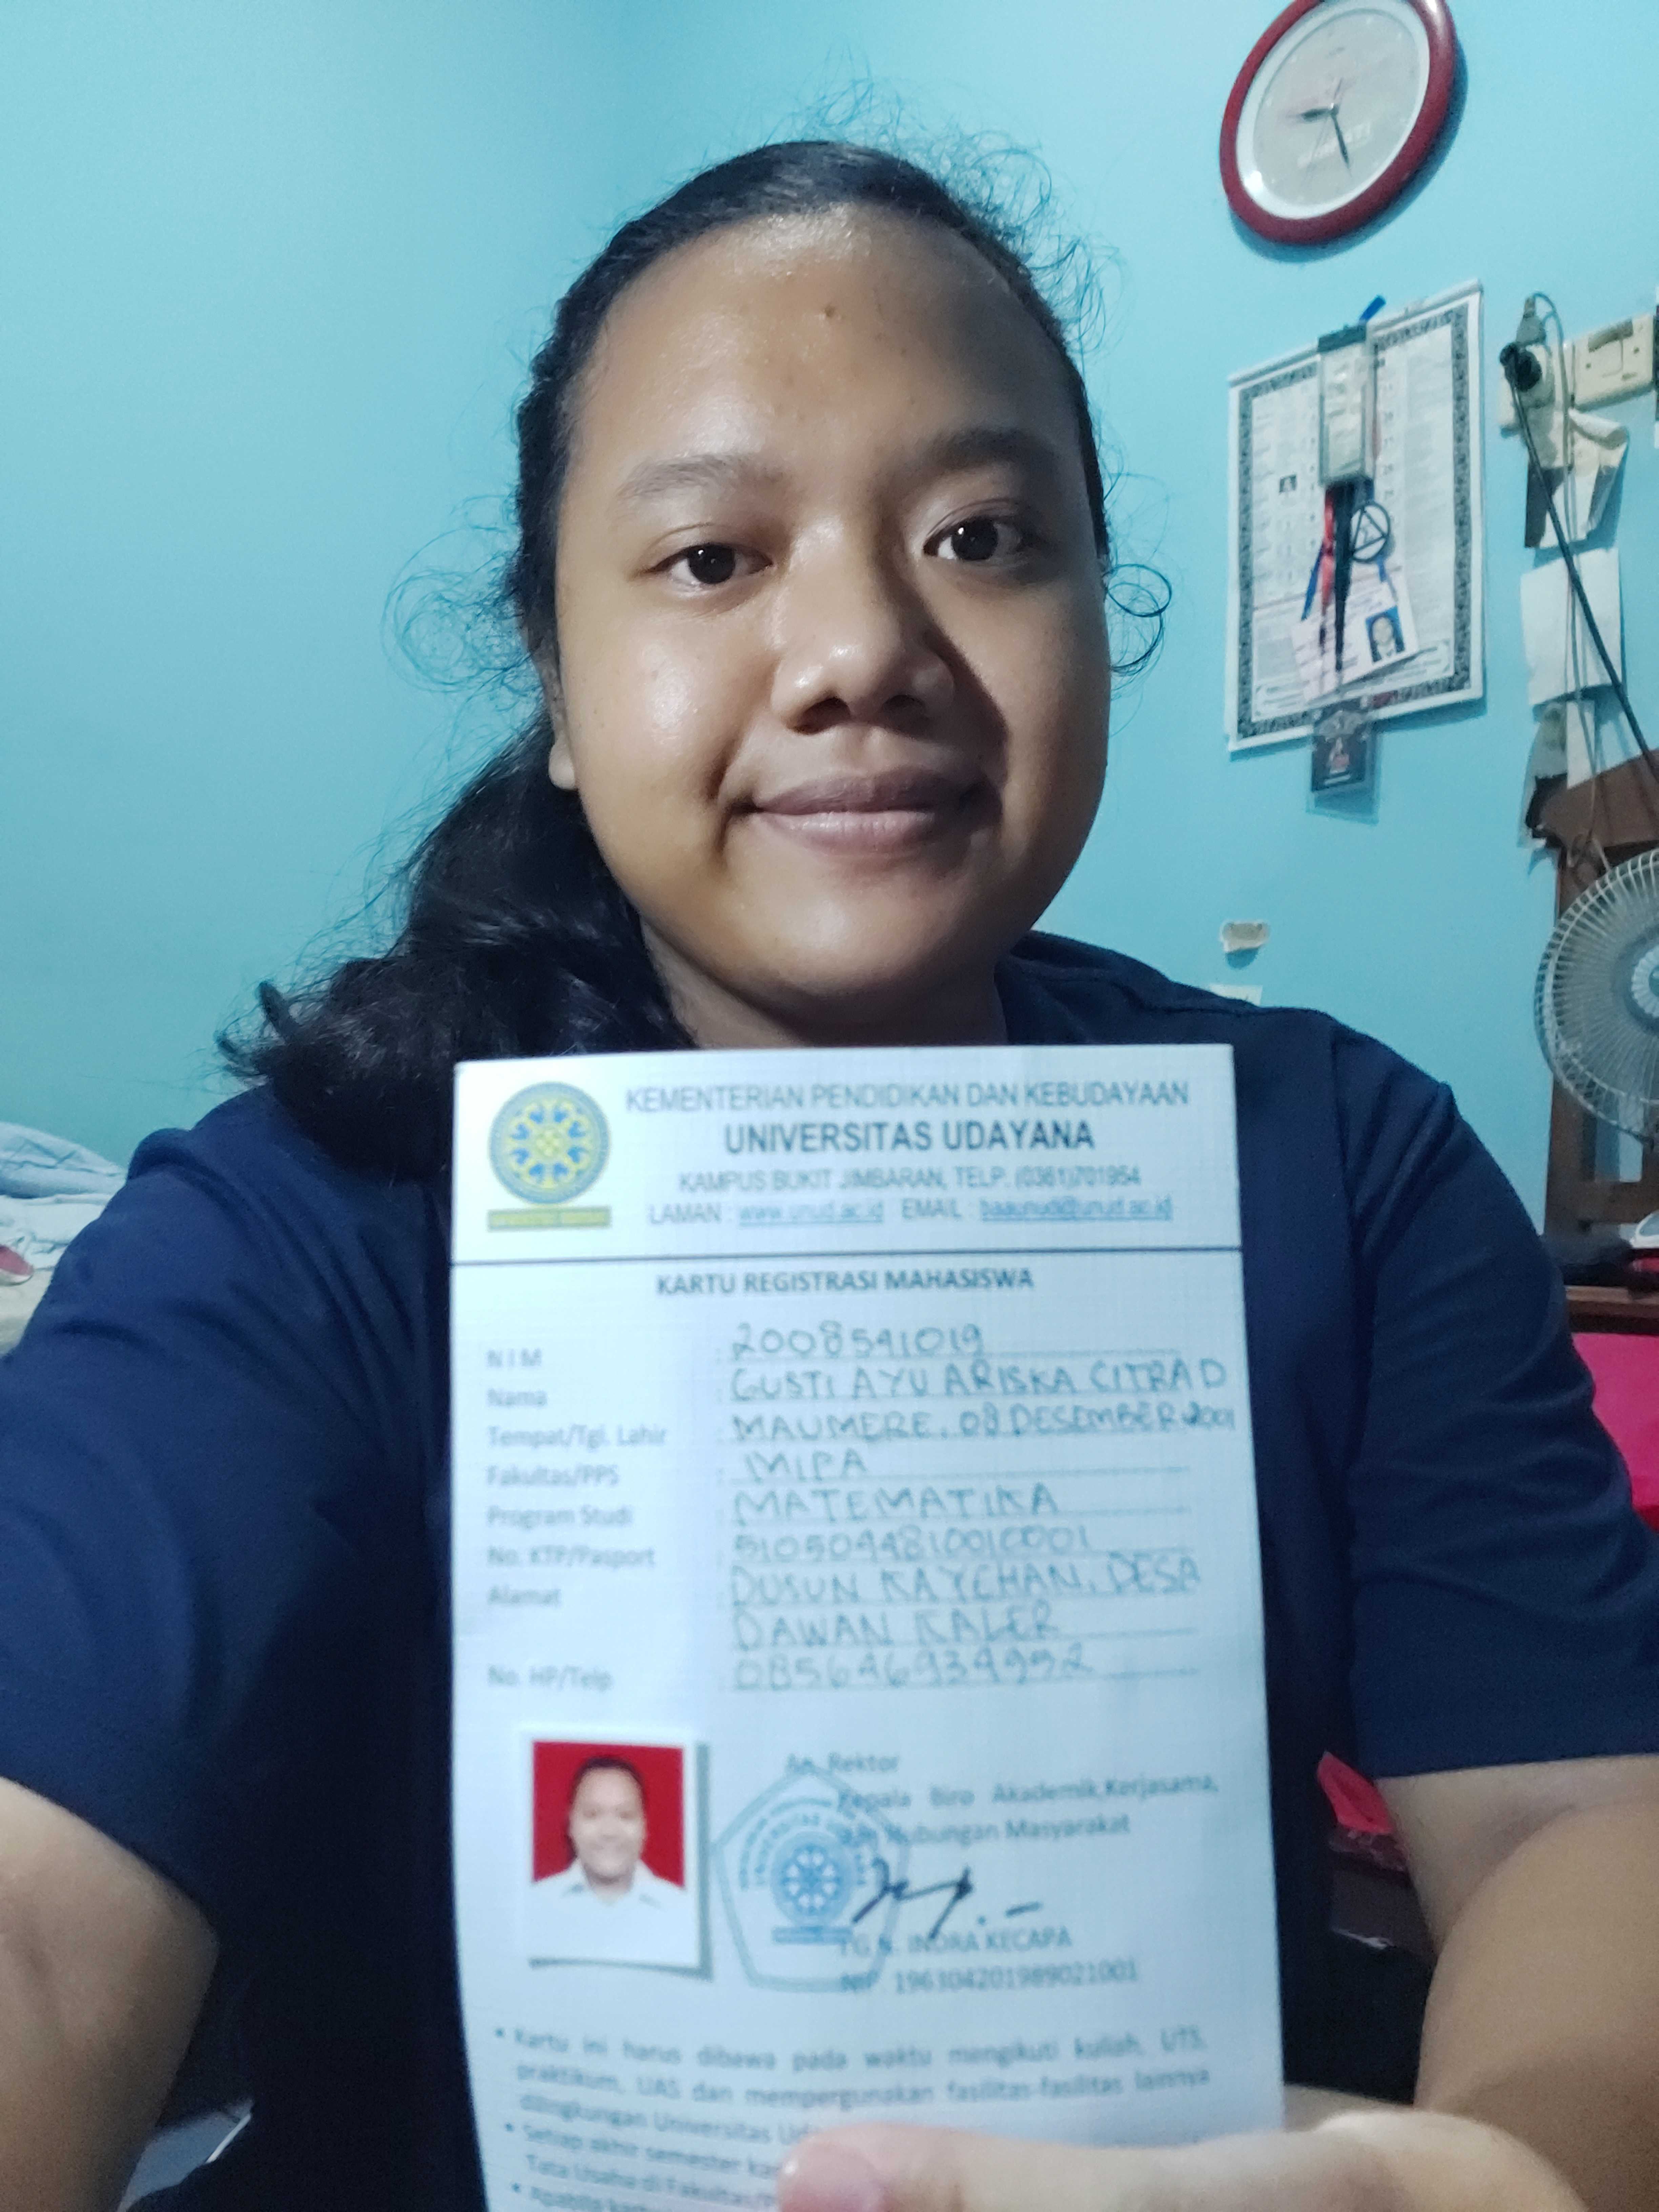 KEMENTERIAN PENDIDIKAN DAN KEBUDAYAAN
UNIVERSITAS UDAYANA
KAMPUS BUKIT JIMBARAN, TELP. (0361)701954
LAMAN : www.unud.ac.id EMAIL : baaunud@unud.ac.id
KARTU REGISTRASI MAHASISWA
NIM : 2008541019
Nama : GUSTI AYU ARISKA CITRA D
Tempat/Tgl. Lahir : MAUMERE, 08 DESEMBER 2001
Fakultas/PPS : MIPA
Program Studi : MATEMATIKA
No. KTP/Pasport : 5105044810010001
Alamat : DUSUN KAYCHAN, DESA
DAWAN KALER
No. HP/Telp : 085646934952
An. Rektor
Kepala Biro Akademik,Kerjasama,
Hubungan Masyarakat
INDRA KECAPA
NIP. 196304201989021001
• Kartu ini harus dibawa pada waktu mengikuti kuliah, UTS,
praktikum, UAS dan mempergunakan fasilitas-fasilitas lainnya
dilingkungan Universitas
• Setiap akhir semester
Tata Usaha di Fakultas/
• Apabila